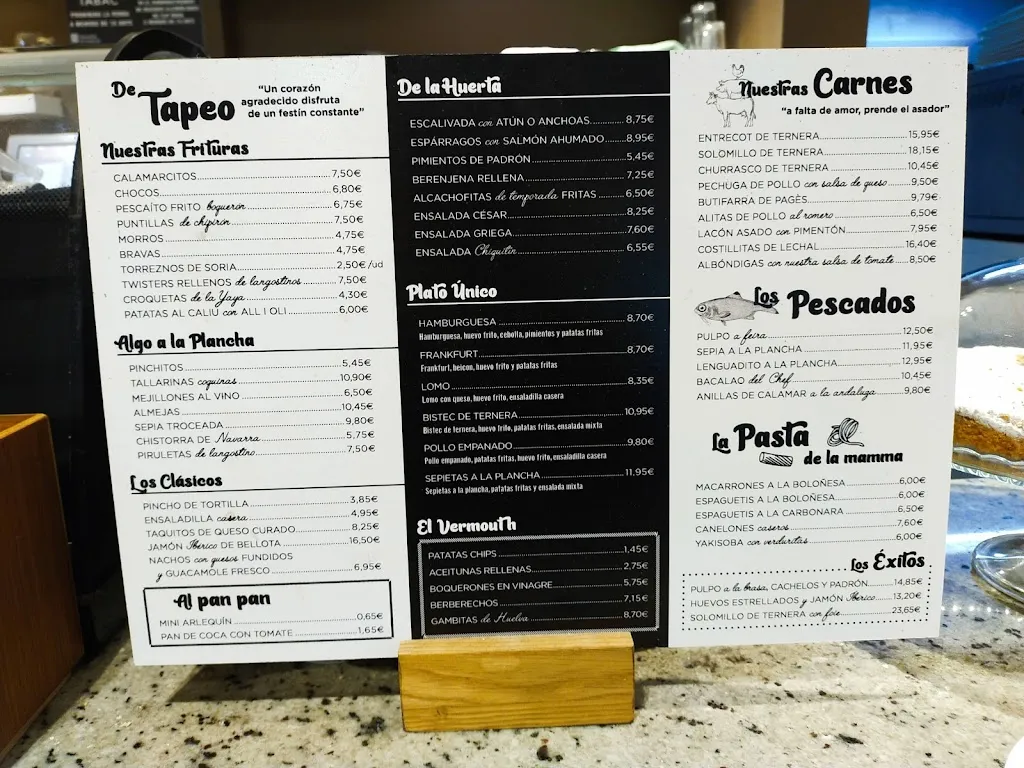 TABAC
De
Tapeo
"Un corazón
agradecido disfruta
de un festín constante"
Nuestras Frituras
CALAMARCITOS 7,50€
CHOCOS 6,80€
PESCAÍTO FRITO boquerón 6,75€
PUNTILLAS de chipirón 7,50€
MORROS 4,75€
BRAVAS 4,75€
TORREZNOS DE SORIA 2,50€/ud
TWISTERS RELLENOS de langostinos 7,50€
CROQUETAS de la Yaya 4,30€
PATATAS AL CALIU con ALL I OLI 6,00€
Algo a la Plancha
PINCHITOS 5,45€
TALLARINAS coquinas 10,90€
MEJILLONES AL VINO 6,50€
ALMEJAS 10,45€
SEPIA TROCEADA 9,80€
CHISTORRA DE Navarra 5,75€
PIRULETAS de langostino 7,50€
Los Clásicos
PINCHO DE TORTILLA 3,85€
ENSALADILLA casera 4,95€
TAQUITOS DE QUESO CURADO 8,25€
JAMÓN Ibérico DE BELLOTA 16,50€
NACHOS con quesos FUNDIDOS
y GUACAMOLE FRESCO 6,95€
Al pan pan
MINI ARLEQUÍN 0,65€
PAN DE COCA CON TOMATE 1,65€
De la Huerta
ESCALIVADA con ATÚN O ANCHOAS 8,75€
ESPÁRRAGOS con SALMÓN AHUMADO 8,95€
PIMIENTOS DE PADRÓN 5,45€
BERENJENA RELLENA 7,25€
ALCACHOFITAS de temporada FRITAS 6,50€
ENSALADA CÉSAR 8,25€
ENSALADA GRIEGA 7,60€
ENSALADA Chiquitín 6,55€
Plato Único
HAMBURGUESA 8,70€
Hamburguesa, huevo frito, cebolla, pimientos y patatas fritas
FRANKFURT 8,70€
Frankfurt, beicon, huevo frito y patatas fritas
LOMO 8,35€
Lomo con queso, huevo frito, ensaladilla casera
BISTEC DE TERNERA 10,95€
Bistec de ternera, huevo frito, patatas fritas, ensalada mixta
POLLO EMPANADO 9,80€
Pollo empanado, patatas fritas, huevo frito, ensaladilla casera
SEPIETAS A LA PLANCHA 11,95€
Sepietas a la plancha, patatas fritas y ensalada mixta
El Vermouth
PATATAS CHIPS 1,45€
ACEITUNAS RELLENAS 2,75€
BOQUERONES EN VINAGRE 5,75€
BERBERECHOS 7,15€
GAMBITAS de Huelva 8,70€
Nuestras Carnes
"a falta de amor, prende el asador"
ENTRECOT DE TERNERA 15,95€
SOLOMILLO DE TERNERA 18,15€
CHURRASCO DE TERNERA 10,45€
PECHUGA DE POLLO con salsa de queso 9,50€
BUTIFARRA DE PAGÈS 9,79€
ALITAS DE POLLO al romero 6,50€
LACÓN ASADO con PIMENTÓN 7,95€
COSTILLITAS DE LECHAL 16,40€
ALBÓNDIGAS con nuestra salsa de tomate 8,50€
Los Pescados
PULPO a feira 12,50€
SEPIA A LA PLANCHA 11,95€
LENGUADITO A LA PLANCHA 12,95€
BACALAO del Chef 10,45€
ANILLAS DE CALAMAR a la andaluza 9,80€
La Pasta
de la mamma
MACARRONES A LA BOLOÑESA 6,00€
ESPAGUETIS A LA BOLOÑESA 6,00€
ESPAGUETIS A LA CARBONARA 6,50€
CANELONES caseros 7,60€
YAKISOBA con verduritas 6,00€
Los Éxitos
PULPO a la brasa, CACHELOS Y PADRÓN 14,85€
HUEVOS ESTRELLADOS y JAMÓN Ibérico 13,20€
SOLOMILLO DE TERNERA con foie 23,65€